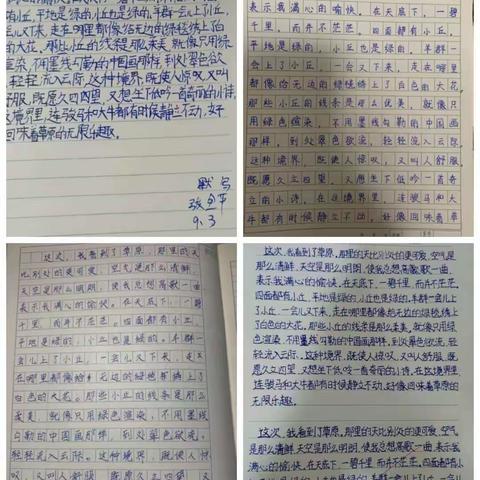 有小丘,平地是绿的,小丘也是绿的。羊群一会儿上了小丘,
一会儿又下来,走在哪里都像给无边的绿毯绣上了
白色的大花。那些小丘的线条是那么柔美,就像只用绿
色渲染,不用墨线勾勒的中国画那样,到处翠色欲
流,轻轻流入云际。这种境界,既使人惊叹,又叫
人舒服,既愿久立四望,又想坐下低吟一首奇丽的小诗。
在这境界里,连骏马和大牛都有时候静立不动,好
像回味着草原的无限乐趣。
默写
9.3
表示我满心的愉快。在天底下,一碧
千里,而并不茫茫。四面都有小丘,
平地是绿的,小丘也是绿的。羊群一
会儿上了小丘,一会又下来,走在哪里
都像给无边的绿毯绣上了白色的大花。
那些小丘的线条是那么柔美,就像只
用绿色渲染,不用墨线勾勒的中国画
那样,到处翠色欲流,轻轻流入云际。
这种境界,既使人惊叹,又叫人舒服,
既愿久立四望,又想坐下低吟一首奇
丽的小诗。在这境界里,连骏马和大
牛都有时候静立不动,好像回味着草
这次,我看到了草原。那里的天
比别处的更可爱,空气是那么清鲜,
天空是那么明朗,使我总想高歌一曲,
表示我满心的愉快。在天底下,一碧
千里,而并不茫茫。四面都有小丘,
平地是绿的,小丘也是绿的。羊群一
会儿上了小丘,一会儿又下来,走在
哪里都像给无边的绿毯绣上了
白色的大花。那些小丘的线条是那么
柔美,就像只用绿色渲染,不用墨线
勾勒的中国画那样,到处翠色欲流,
轻轻流入云际。这种境界,既使人惊
叹,又叫人舒服,既愿久立四望,又
这次,我看到了草原。那里的天比别处的更可爱,空气是
那么清鲜,天空是那么明朗,使我总想高歌一曲,
表示我满心的愉快。在天底下,一碧千里,而并不茫茫。
四面都有小丘,平地是绿的,小丘也是绿的。羊群一会儿上
了小丘,一会儿又下来,走在哪里都像给无边的绿毯绣上
了白色的大花。那些小丘的线条是那么柔美,就像只用绿
色渲染,不用墨线勾勒的中国画那样,到处翠色欲流,轻
轻流入云际。这种境界,既使人惊叹,又叫人舒服,既
愿久立四望,又想坐下低吟一首奇丽的小诗。在这境界里,
连骏马和大牛都有时候静立不动,好像回味着草原的
无限乐趣。
这次,我看到了草原。那里的天比别处的更可爱,空气
是那么清鲜,天空是那么明朗,使我总想高歌一曲,表示我
满心的愉快。在天底下,一碧千里,而并不茫茫。四面都有小